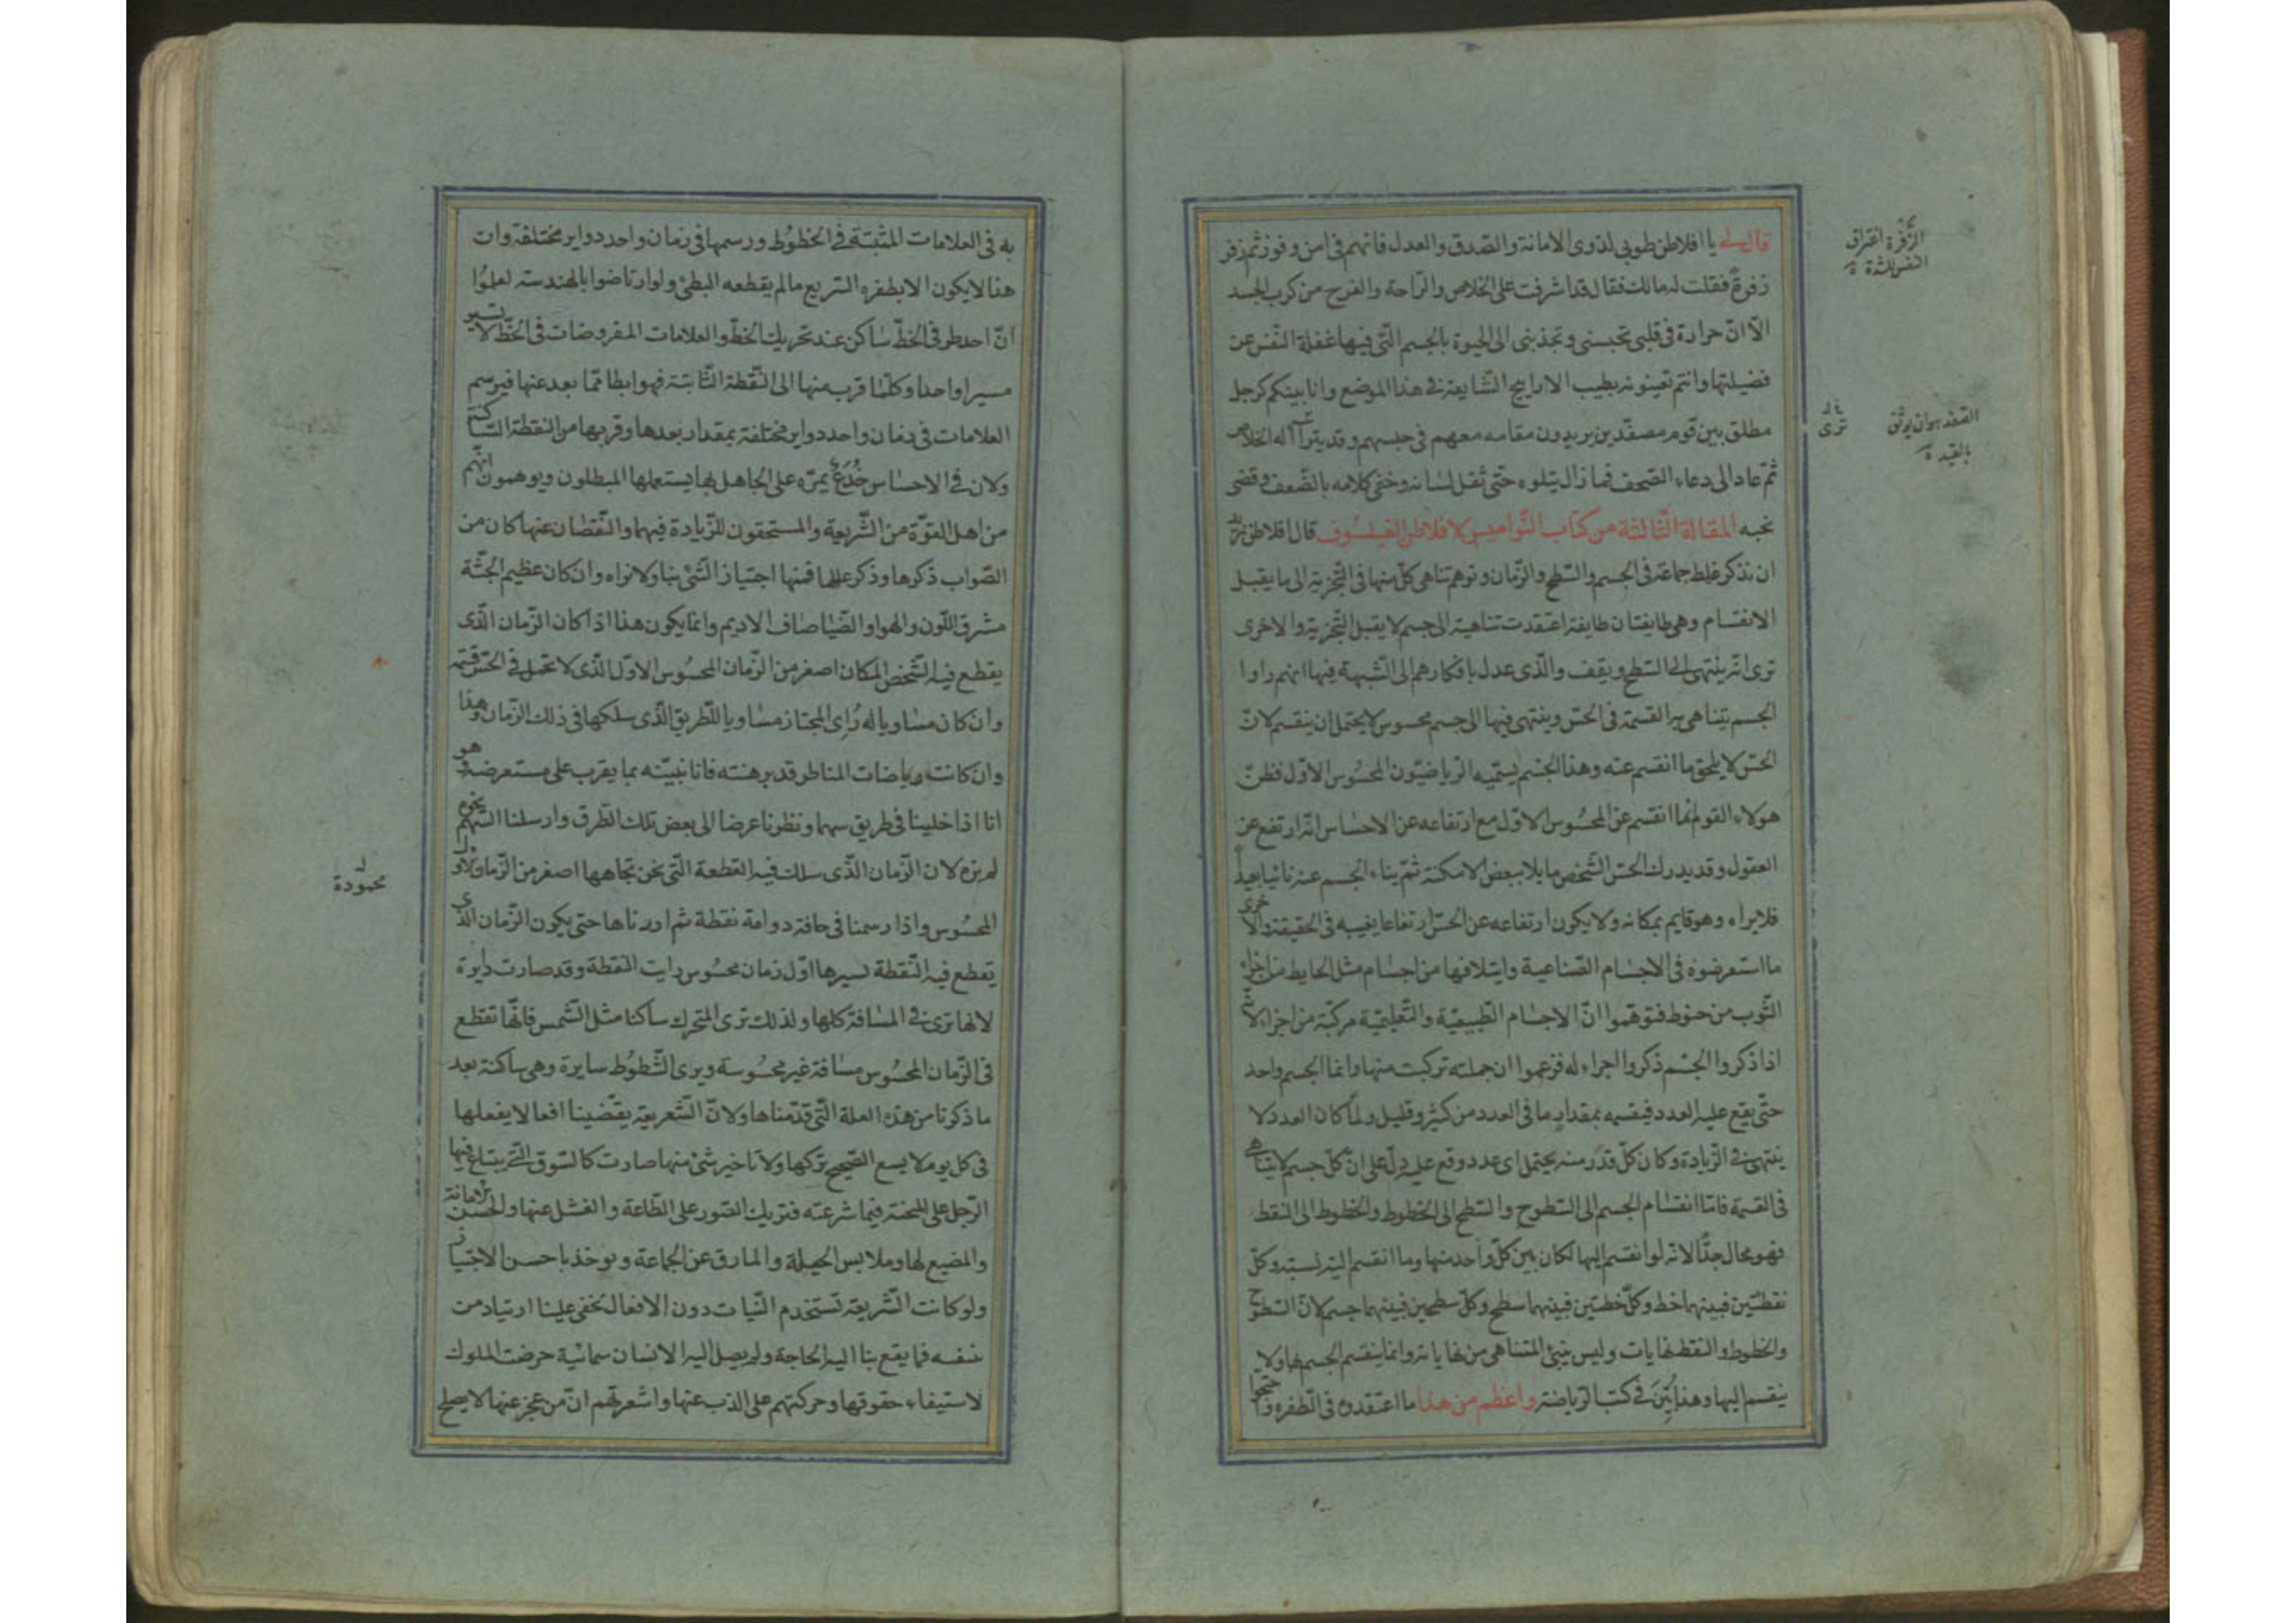 قال لى يا افلاطن طوبى لذوى الامانة والصدق والعدل فانهم فى امن وفوز ثم زفر
زفرة فقلت له مالك فقال قد اشرفت على الخلاص والراحة والفرح من كرب الجسد
الا ان حرارة فى قلبى تحبسنى وتجذبنى الى الحيوة بالجسم التى فيها غفلة النفس عن
فضيلتها وانتم تعينونه بطيب الاراييح الشايعة فى هذا الموضع وانا بينكم كرجل
مطلق بين قوم مصفدين يريدون مقامه معهم فى حبسهم وقد يترآاله الخلاص
ثم عاد الى دعاء الصحف فما زال يتلوه حتى ثقل لسانه وخفى كلامه بالضعف وقضى
نحبه المقالة الثالثة من كتاب النواميس لافلاطن الفيلسوف قال افلاطن نريد
ان نذكر غلط جماعة فى الجسم والسطح والزمان وتوهم تناهى كل منها فى التجزية الى ما يقبل
الانقسام وهى طايفتان طايفة اعتقدت تناهيه الى جسم لا يقبل التجزية والاخرى
ترى انه ينتهى الى السطح ويقف والذى عدل بافكارهم الى الشبهة فيها انهم راوا
الجسم يتناهى به القسمة فى الحس وينتهى فيها الى جسم محسوس لا يحتمل ان ينقسم لان
الحس لا يلحق ما انقسم عنه وهذا الجسم يسميه الرياضيون المحسوس الاول فظن
هولاء القوم انما انقسم عن المحسوس الاول مع ارتفاعه عن الاحساس انه ارتفع عن
العقول وقد يدرك الحس الشخص مايلا ببعض الامكنة ثم يناء الجسم عنه نائيا بعيدا
فلا يراه وهو قايم بمكانه ولا يكون ارتفاعه عن الحس ارتفاعا يغيبه فى الحقيقة والاخرى
ما استعرضوه فى الاجسام الصناعية وايتلافها من اجسام مثل الحايط من اجزاء
الثوب من خيوط فتوهموا ان الاجسام الطبيعية والتعليمية مركبة من اجزاء لا
اذا ذكروا الجسم ذكروا اجزاء له فزعموا ان جملته تركبت منها وانما الجسم واحد
حتى يقع عليه العدد فيقسمه بمقدار ما فى العدد من كثير وقليل ولما كان العدد لا
ينتهى فى الزيادة وكان كل قدر منه يحتمل اى عدد وقع عليه دل على ان كل جسم لا يتناهى
فى القسمة فاما انقسام الجسم الى السطوح والسطح الى الخطوط والخطوط الى النقط
فهو محال جدا لانه لو انقسم اليها لكان بين كل واحد منها وما انقسم اليه نسبة وكل
نقطتين فبينهما خط وكل خطين فبينهما سطح وكل سطحين فبينهما جسم لان السطوح
والخطوط والنقط نهايات وليس ينبئ المتناهى من نهاياته وانما ينقسم الجسم بها ولا
ينقسم اليها وهذا بين فى كتب الرياضة واعظم من هذا ما اعتقدوه فى الطفره واحتجوا
الزفرة اغتراق
النفس للشدة
ترى
الصفد هو ان يوثق
بالقيد
به فى العلامات المثبتة فى الخطوط ورسمها فى زمان واحد دواير مختلفة وان
هذا لا يكون الا بطفره السريع ما لم يقطعه البطئ ولو ارتاضوا بالهندسة لعلموا
ان احد طرفى الخط ساكن عند تحريك الخط والعلامات المفروضات فى الخط لا تسير
مسيرا واحدا وكلما قرب منها الى النقطة الثابتة فهو ابطا مما بعد عنها فيرسم
العلامات فى زمان واحد دواير مختلفة بمقدار بعدها وقربها من النقطة الساكنة
ولان فى الاحساس خدع يمر على الجاهل بها يستعملها المبطلون ويوهمون انهم
من اهل القوة من الشريعة والمستحقون للزيادة فيهما والنقصان عنها كان من
الصواب ذكرها وذكر عللها فمنها اجتياز الشئ بنا ولا نراه وان كان عظيم الجثة
مشرق اللون والهواو الضيا صاف الاديم وانما يكون هذا اذا كان الزمان الذى
يقطع فيه الشخص المكان اصغر من الزمان المحسوس الاول الذى لا تحمل فى الحس قسمة
وان كان مساويا له راى المجتاز مساويا للطريق الذى سلكها فى ذلك الزمان وهذا
وان كانت رياضات المناظر قد برهنته فانا نبينه بما يقرب على مستعرضه وهو
انا اذا خلينا فى طريق سهما ونظرنا عرضا الى بعض تلك الطرق وارسلنا السهم
لم نره لان الزمان الذى سلك فيه القطعة التى نحن تجاهها اصغر من الزمان الاول
المحسوس واذا رسمنا فى حافة دوامة نقطة ثم ادرناها حتى يكون الزمان الذى
تقطع فيه النقطة لسيرها اول زمان محسوس رايت النقطة وقد صارت دايرة
لانها ترى فى المسافة كلها ولذلك ترى المتحرك ساكنا مثل الشمس فانها تقطع
فى الزمان المحسوس مسافة غير محسوسة ويرى الشطوط سايرة وهى ساكنة بعد
ما ذكرنا من هذه العلة التى قدمناها ولان الشعريعة يقضينا افعالا يفعلها
فى كل يوم لا يسع الصحيح تركها ولا تاخير شئ منها صارت كالسوق التى يبتاع فيها
الرجل على المحنة فيما شرعته فتريك الصور على الطاعة والفشل عنها والحسن الامانة
والمضيع لها وملابس الحيلة والمارق عن الجماعة ويوخذ باحسن الاختيار
ولو كانت الشريعة تستخدم النيات دون الافعال لخفى علينا ارتياد من
نفسه فما يقع بنا اليه الحاجة ولم يصل اليه الانسان سمائية حرضت الملوك
لاستيفاء حقوقها وحركتهم على الذب عنها واشعرتهم ان من عجز عنها لا يصلح
محمودة